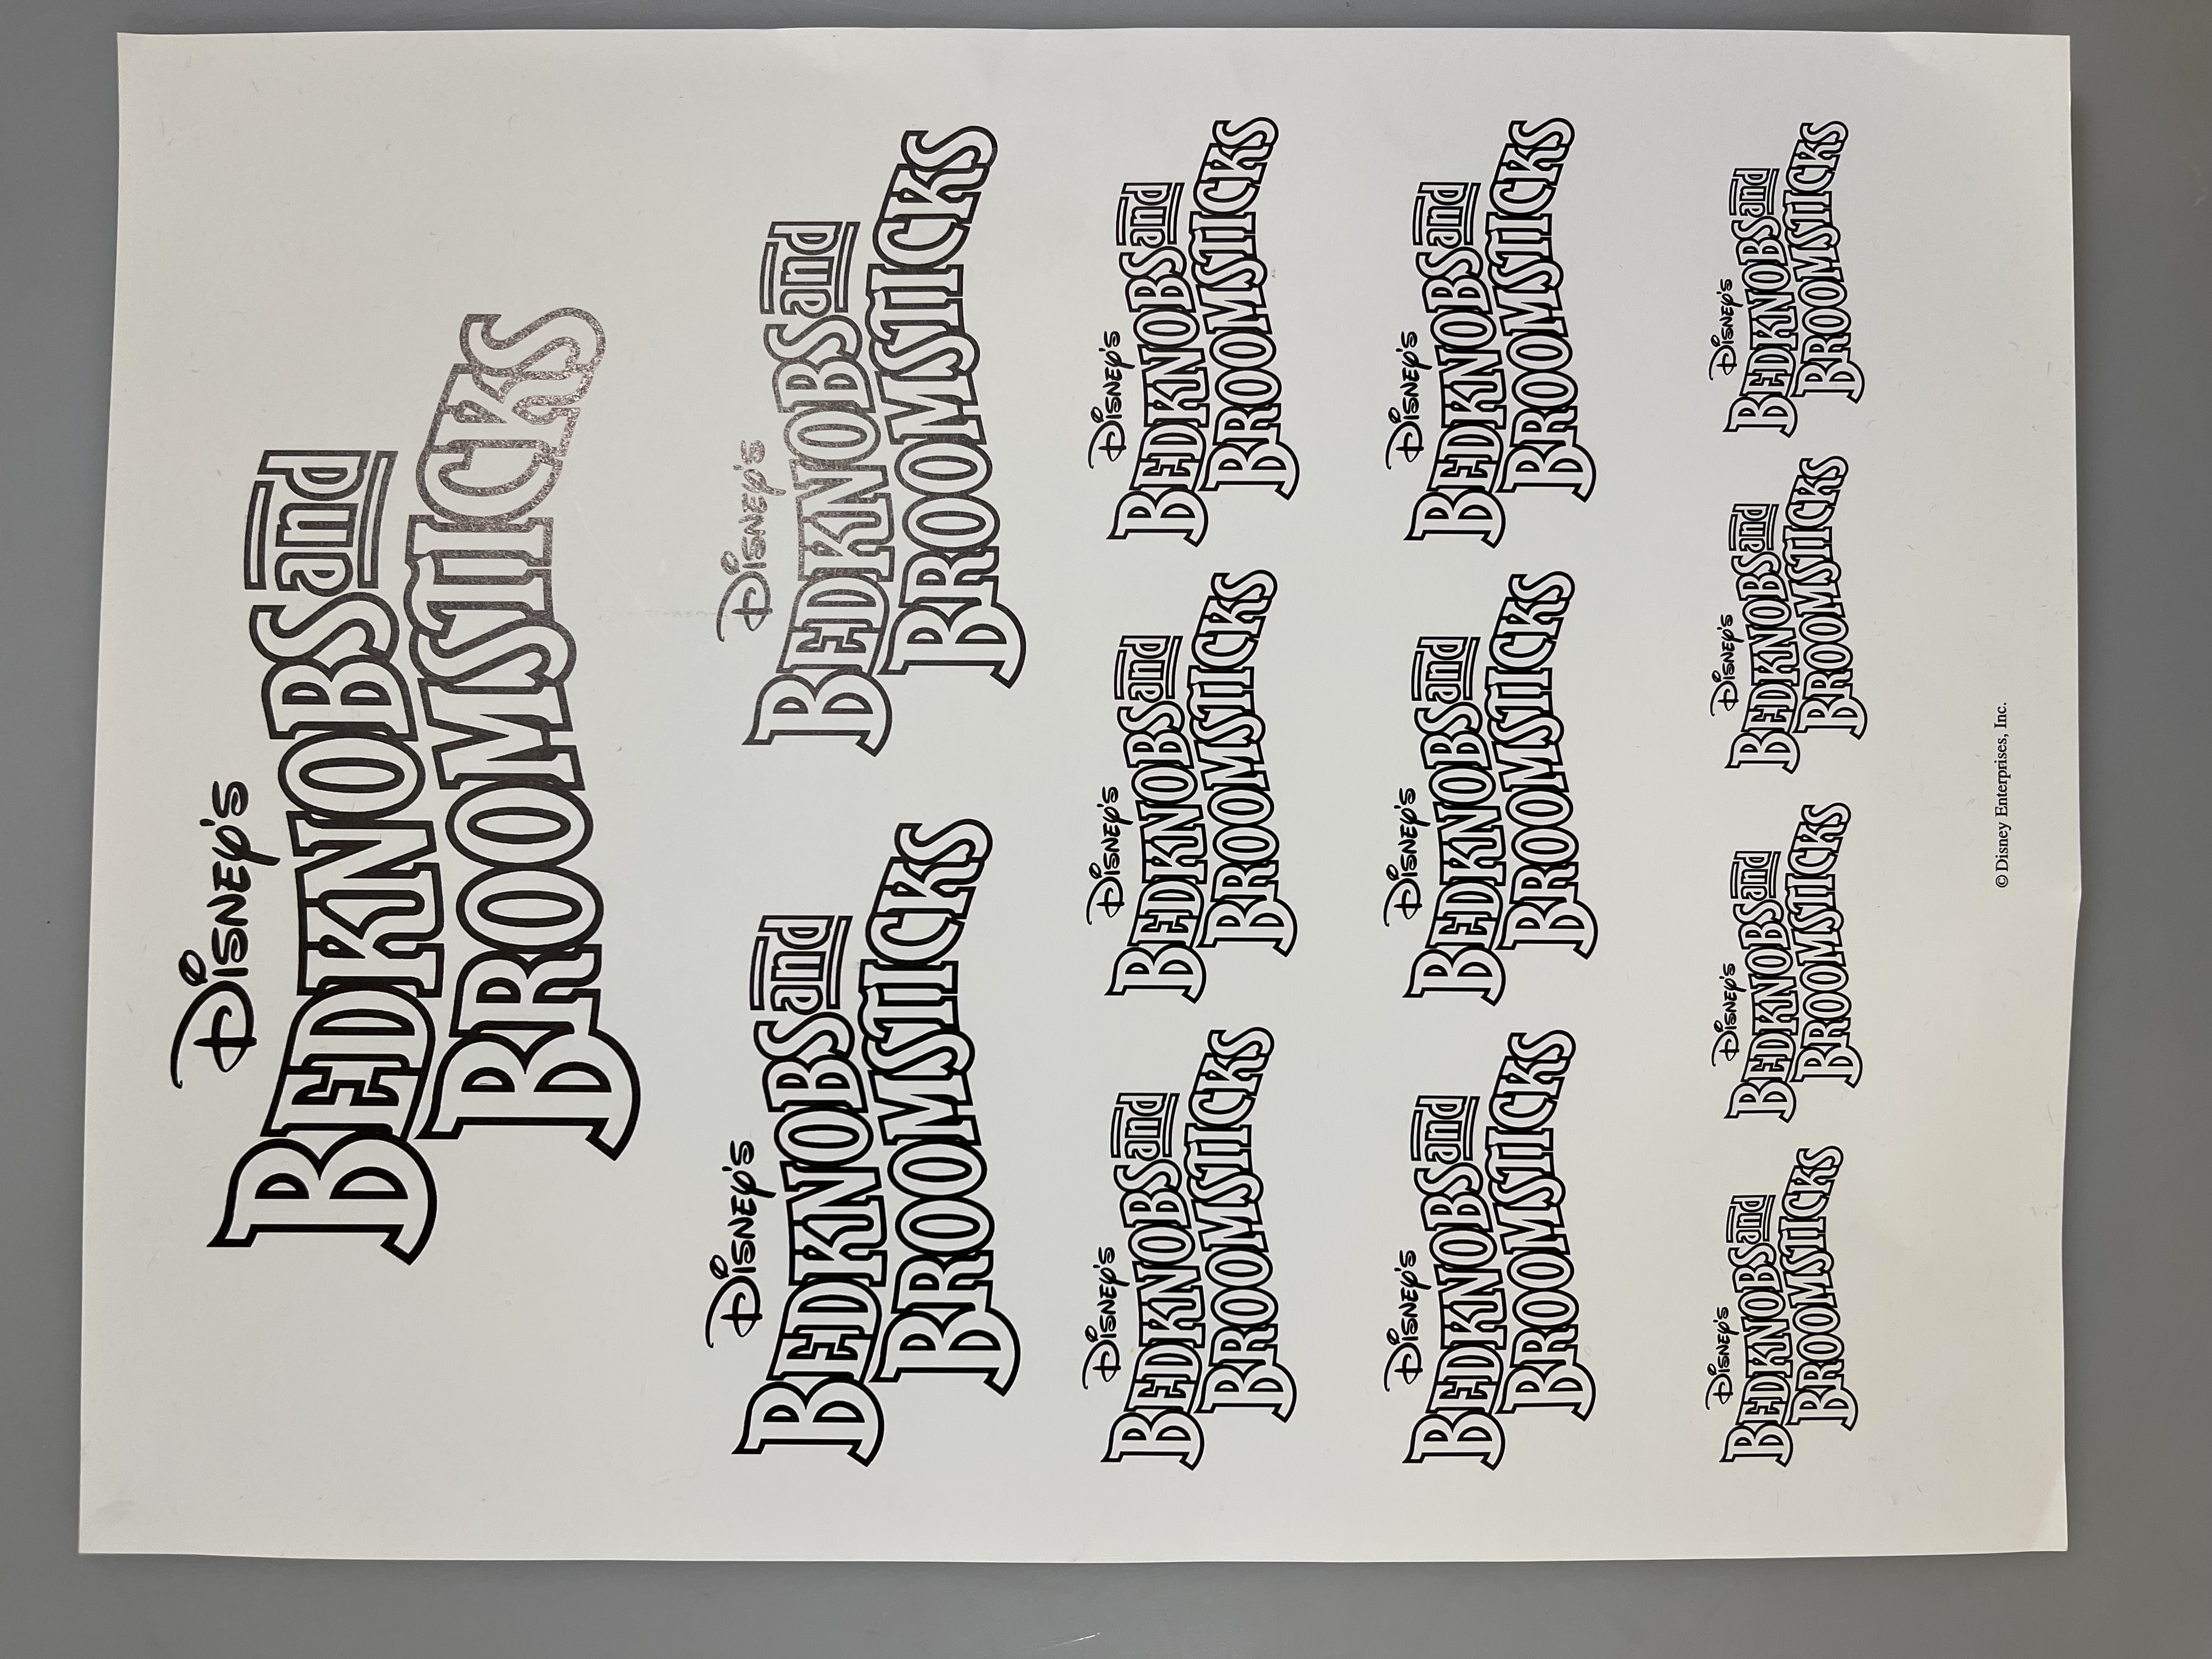 Disney's
BEDKNOBS and
BROOMSTICKS
Disney's
BEDKNOBS and
BROOMSTICKS
Disney's
BEDKNOBS and
BROOMSTICKS
Disney's
BEDKNOBS and
BROOMSTICKS
Disney's
BEDKNOBS and
BROOMSTICKS
Disney's
BEDKNOBS and
BROOMSTICKS
Disney's
BEDKNOBS and
BROOMSTICKS
Disney's
BEDKNOBS and
BROOMSTICKS
Disney's
BEDKNOBS and
BROOMSTICKS
Disney's
BEDKNOBS and
BROOMSTICKS
Disney's
BEDKNOBS and
BROOMSTICKS
Disney's
BEDKNOBS and
BROOMSTICKS
Disney's
BEDKNOBS and
BROOMSTICKS
© Disney Enterprises, Inc.